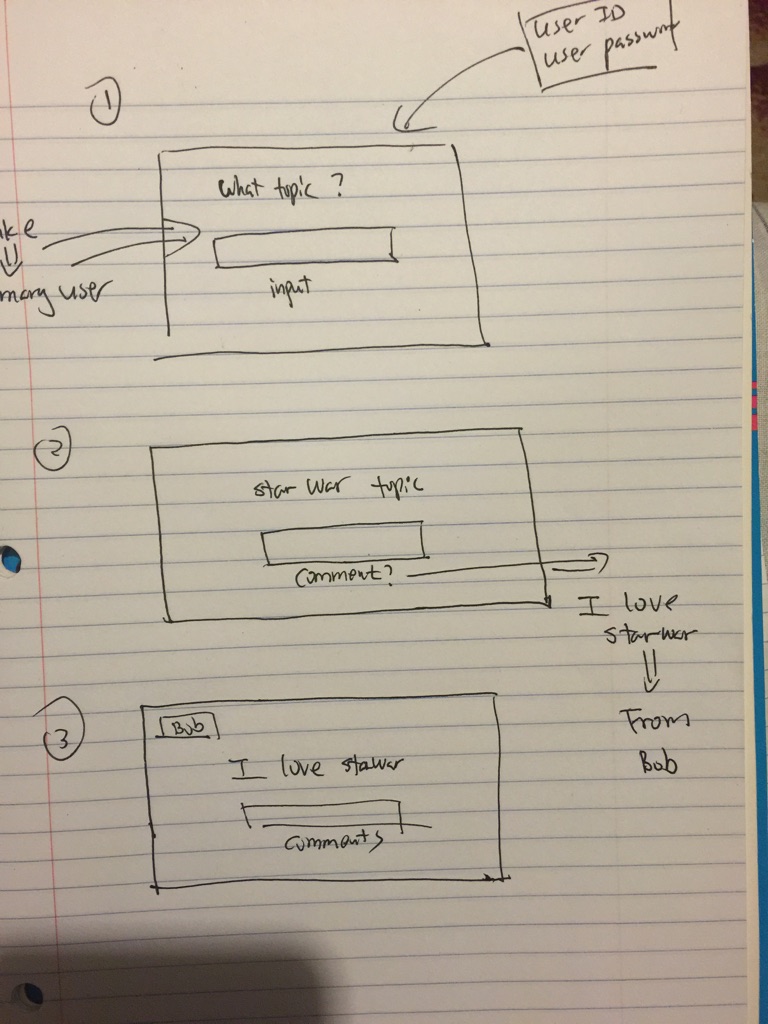 User ID
user
1
what topic ?
input
user
2
star war topic
comment?
I love
starwar
From
Bob
3
Bob
I love stawar
comments